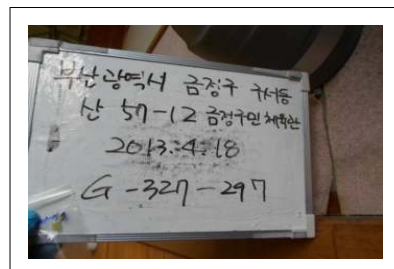 부산광역시 금정구 구서동
산 57-12 금정구민체육관
2013.4.18
G-327-297